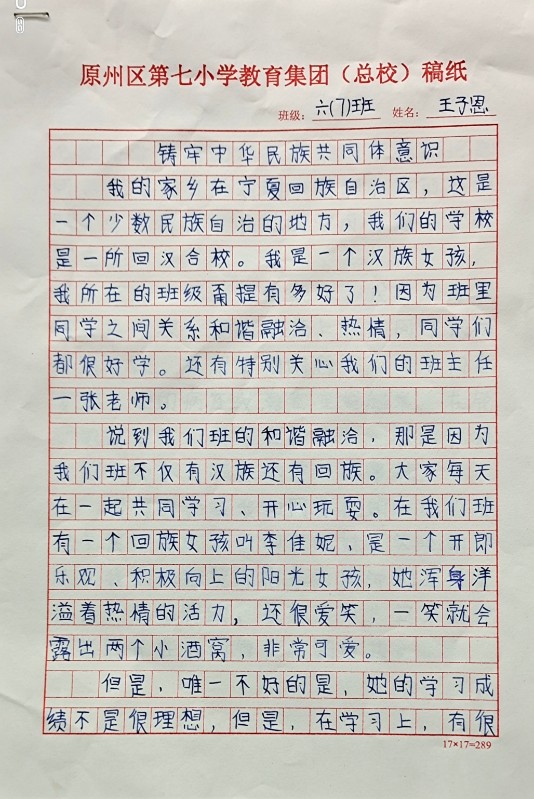 原州区第七小学教育集团（总校）稿纸
班级：六(7)班 姓名：王子恩
铸牢中华民族共同体意识
我的家乡在宁夏回族自治区，这是
一个少数民族自治的地方，我们的学校
是一所回汉合校。我是一个汉族女孩，
我所在的班级甭提有多好了！因为班里
同学之间关系和谐融洽、热情，同学们
都很好学。还有特别关心我们的班主任
一张老师。
说到我们班的和谐融洽，那是因为
我们班不仅有汉族还有回族。大家每天
在一起共同学习、开心玩耍。在我们班
有一个回族女孩叫李佳妮，是一个开郎
乐观、积极向上的阳光女孩，她浑身洋
溢着热情的活力，还很爱笑，一笑就会
露出两个小酒窝，非常可爱。
但是，唯一不好的是，她的学习成
绩不是很理想，但是，在学习上，有很
17×17=289